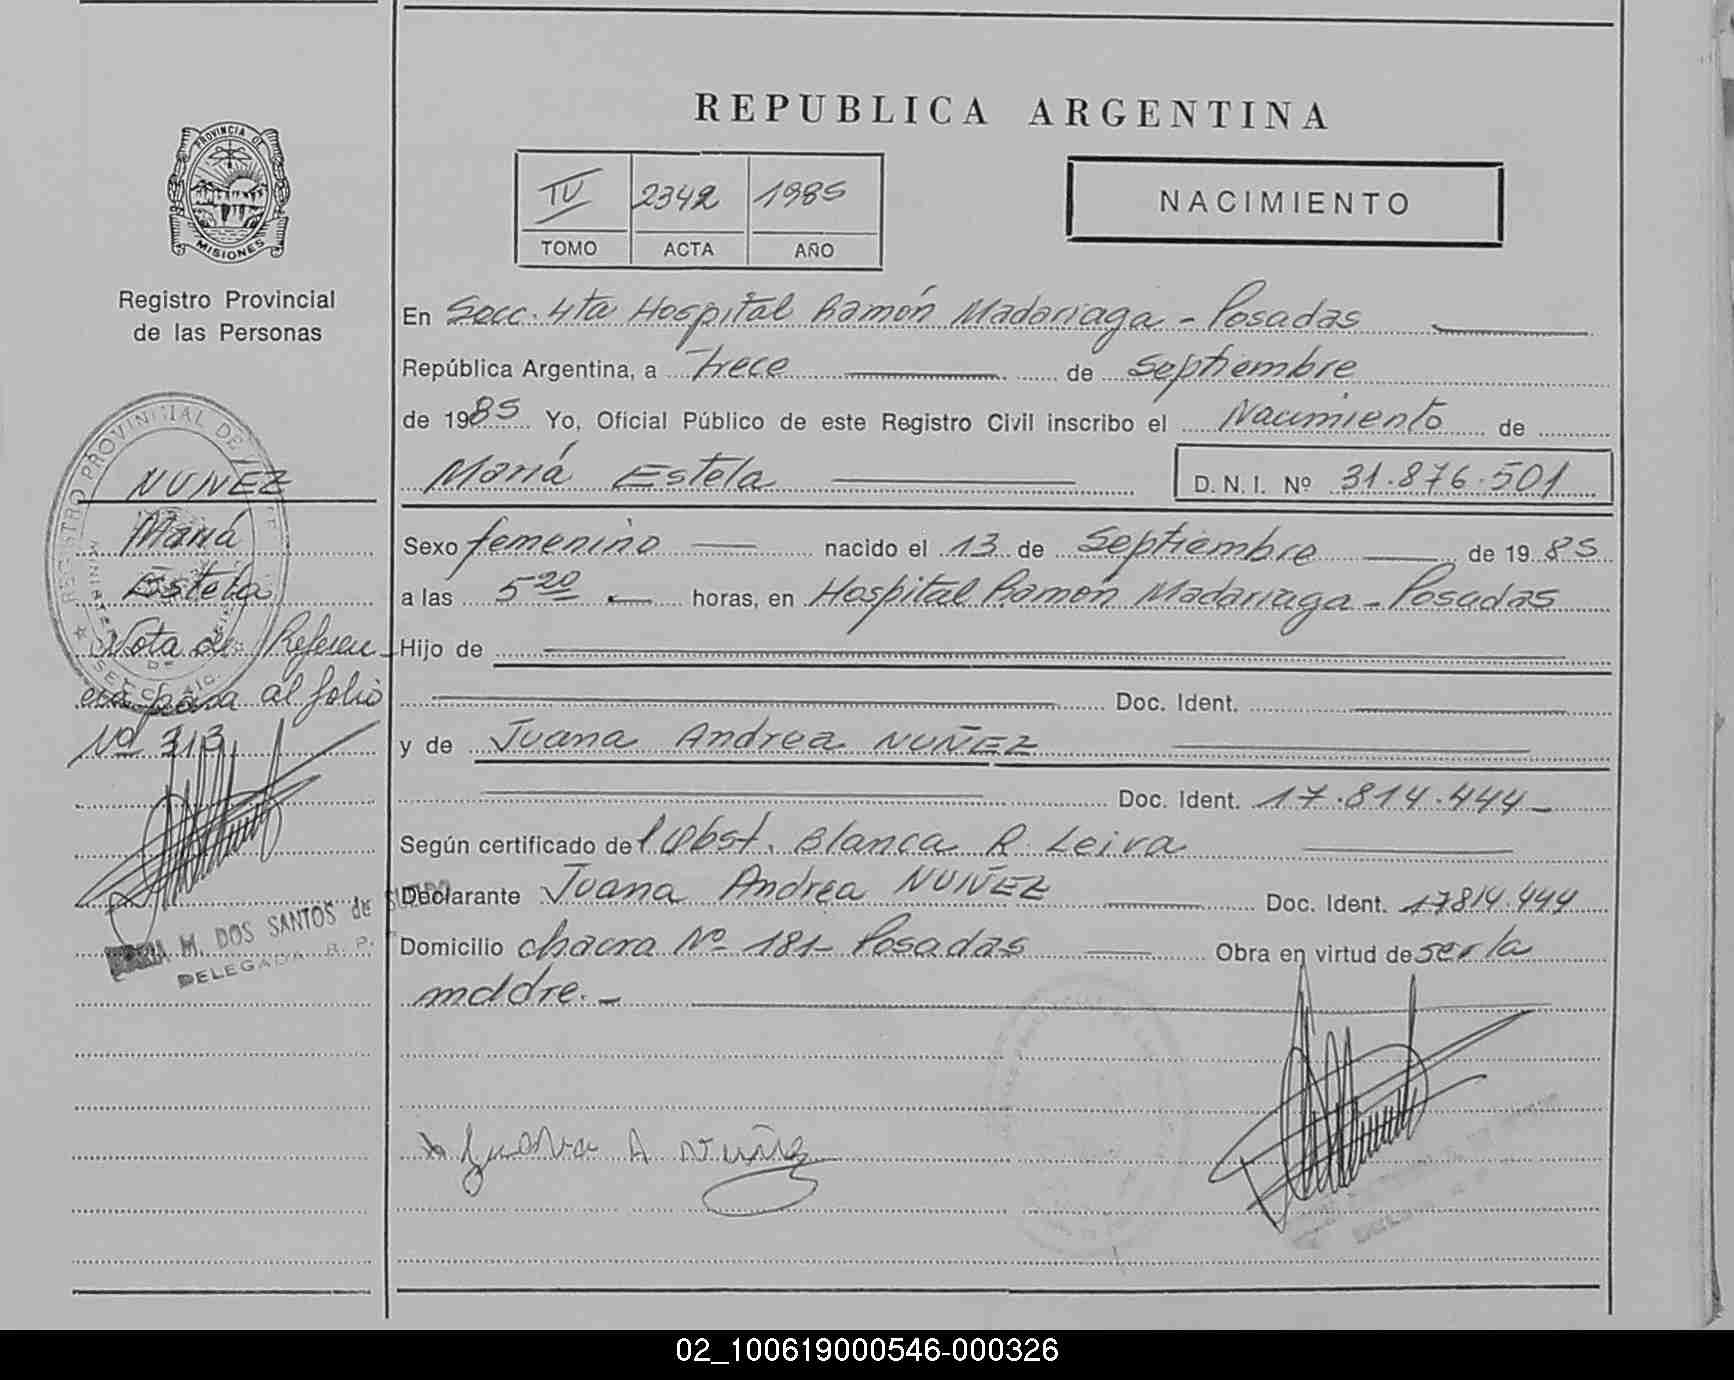 REPUBLICA ARGENTINA
PROVINCIA DE
MISIONES
Registro Provincial
de las Personas
IV 2342 1985
TOMO ACTA AÑO
NACIMIENTO
En Secc. 4ta Hospital Ramón Madariaga - Posadas
República Argentina, a Trece de Septiembre
de 1985 Yo, Oficial Público de este Registro Civil inscribo el Nacimiento de
María Estela D.N.I. Nº 31.876.501
Sexo femenino nacido el 13 de Septiembre de 1985
a las 5 20 horas, en Hospital Ramón Madariaga - Posadas
Hijo de
Doc. Ident.
y de Juana Andrea NUÑEZ
Doc. Ident. 17.814.444
Según certificado de Obst. Blanca R. Leiva
Declarante Juana Andrea NUÑEZ Doc. Ident. 17814.444
Domicilio chacra Nº 181- Posadas Obra en virtud de ser la
madre.-
Juana A Nuñez
REGISTRO PROVINCIAL DE
NUÑEZ
María
Estela
Nota de Referen
cia para al folio
Nº 313
M. DOS SANTOS de
DELEGADA R. P.
02_100619000546-000326